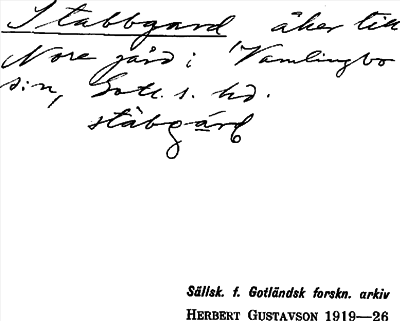 Stabbgard åker till
Nore gård i Vamlingbo
s:n, Gotl. s. hd.
stàbgárd
Sällsk. f. Gotländsk forskn. arkiv
HERBERT GUSTAVSON 1919—26